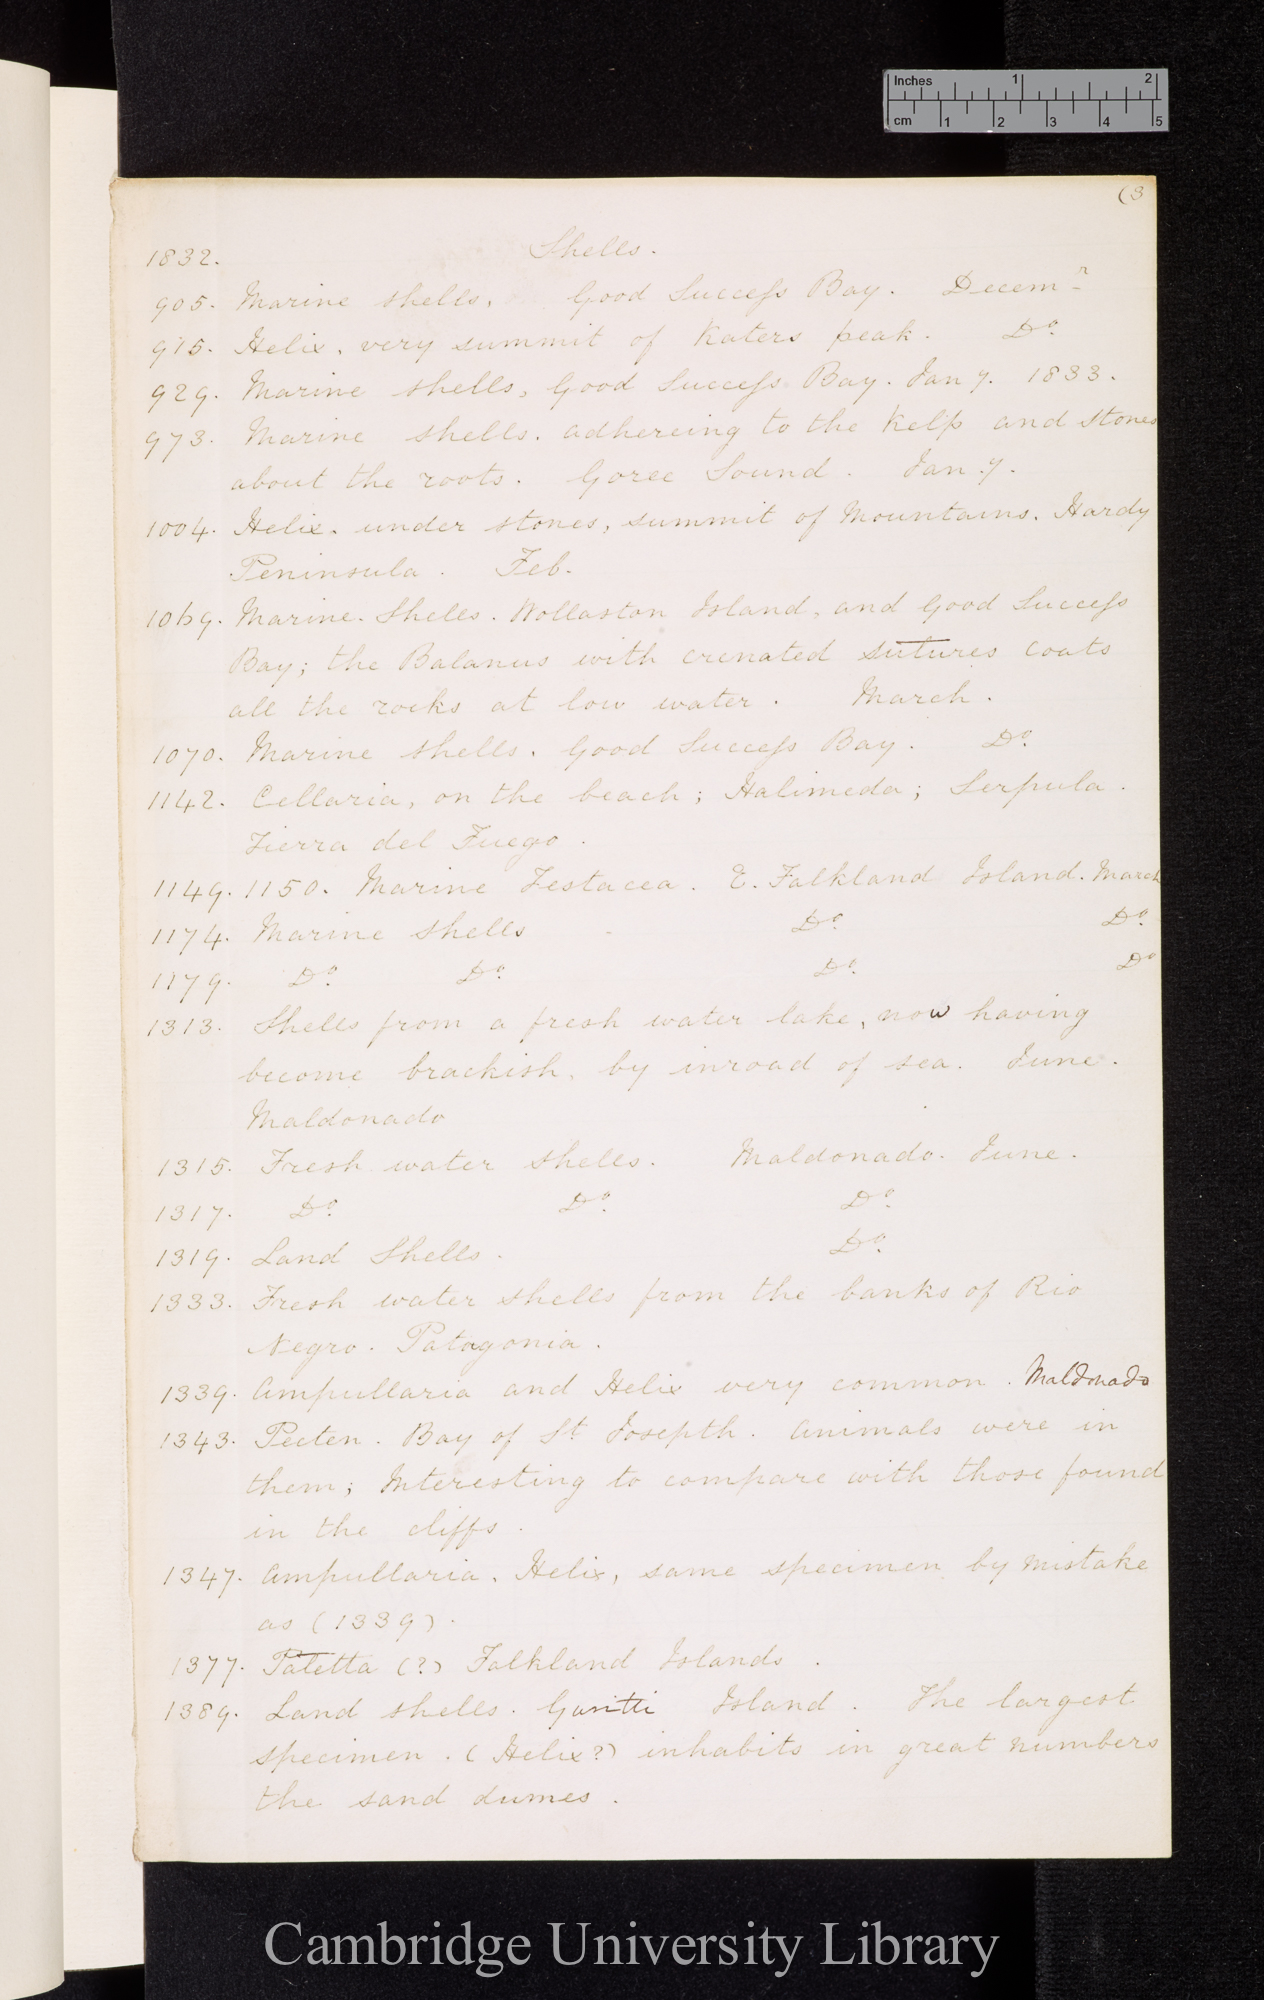 Inches 1 2
cm 1 2 3 4 5
(3
1832. Shells.
905. Marine shells, Good Success Bay. Decemr
915. Helix, very summit of Katers peak. Do.
929. Marine shells, Good Success Bay. Jan 7. 1833.
973. Marine shells. adhereing to the Kelp and stones
about the roots. Goree Sound. Jan. 7.
1004. Helix. under stones, summit of Mountains. Hardy
Peninsula. Feb.
1069. Marine. Shells. Wollaston Island, and Good Success
Bay; the Balanus with crenated sutures coats
all the rocks at low water. March.
1070. Marine shells. Good Success Bay. Do.
1142. Cellaria, on the beach; Halimeda; Serpula.
Tierra del Fuego.
1149. 1150. Marine Testacea. E. Falkland Island. March
1174. Marine shells Do. Do.
1179. Do. Do. Do. Do
1313. Shells from a fresh water lake, now having
become brackish, by inroad of sea. June.
Maldonado
1315. Fresh water shells. Maldonado. June.
1317. Do. Do. Do.
1319. Land Shells. Do.
1333. Fresh water shells from the banks of Rio
Negro. Patagonia.
1339. Ampullaria and Helix very common. Maldonado
1343. Pecten. Bay of St Josepth. Animals were in
them; Interesting to compare with those found
in the cliffs.
1347. Ampullaria. Helix, same specimen by mistake
as (1339).
1377. Patetta (?) Falkland Islands.
1389. Land shells. Goritti Island. The largest
specimen. (Helix?) inhabits in great numbers
the sand dumes.
Cambridge University Library